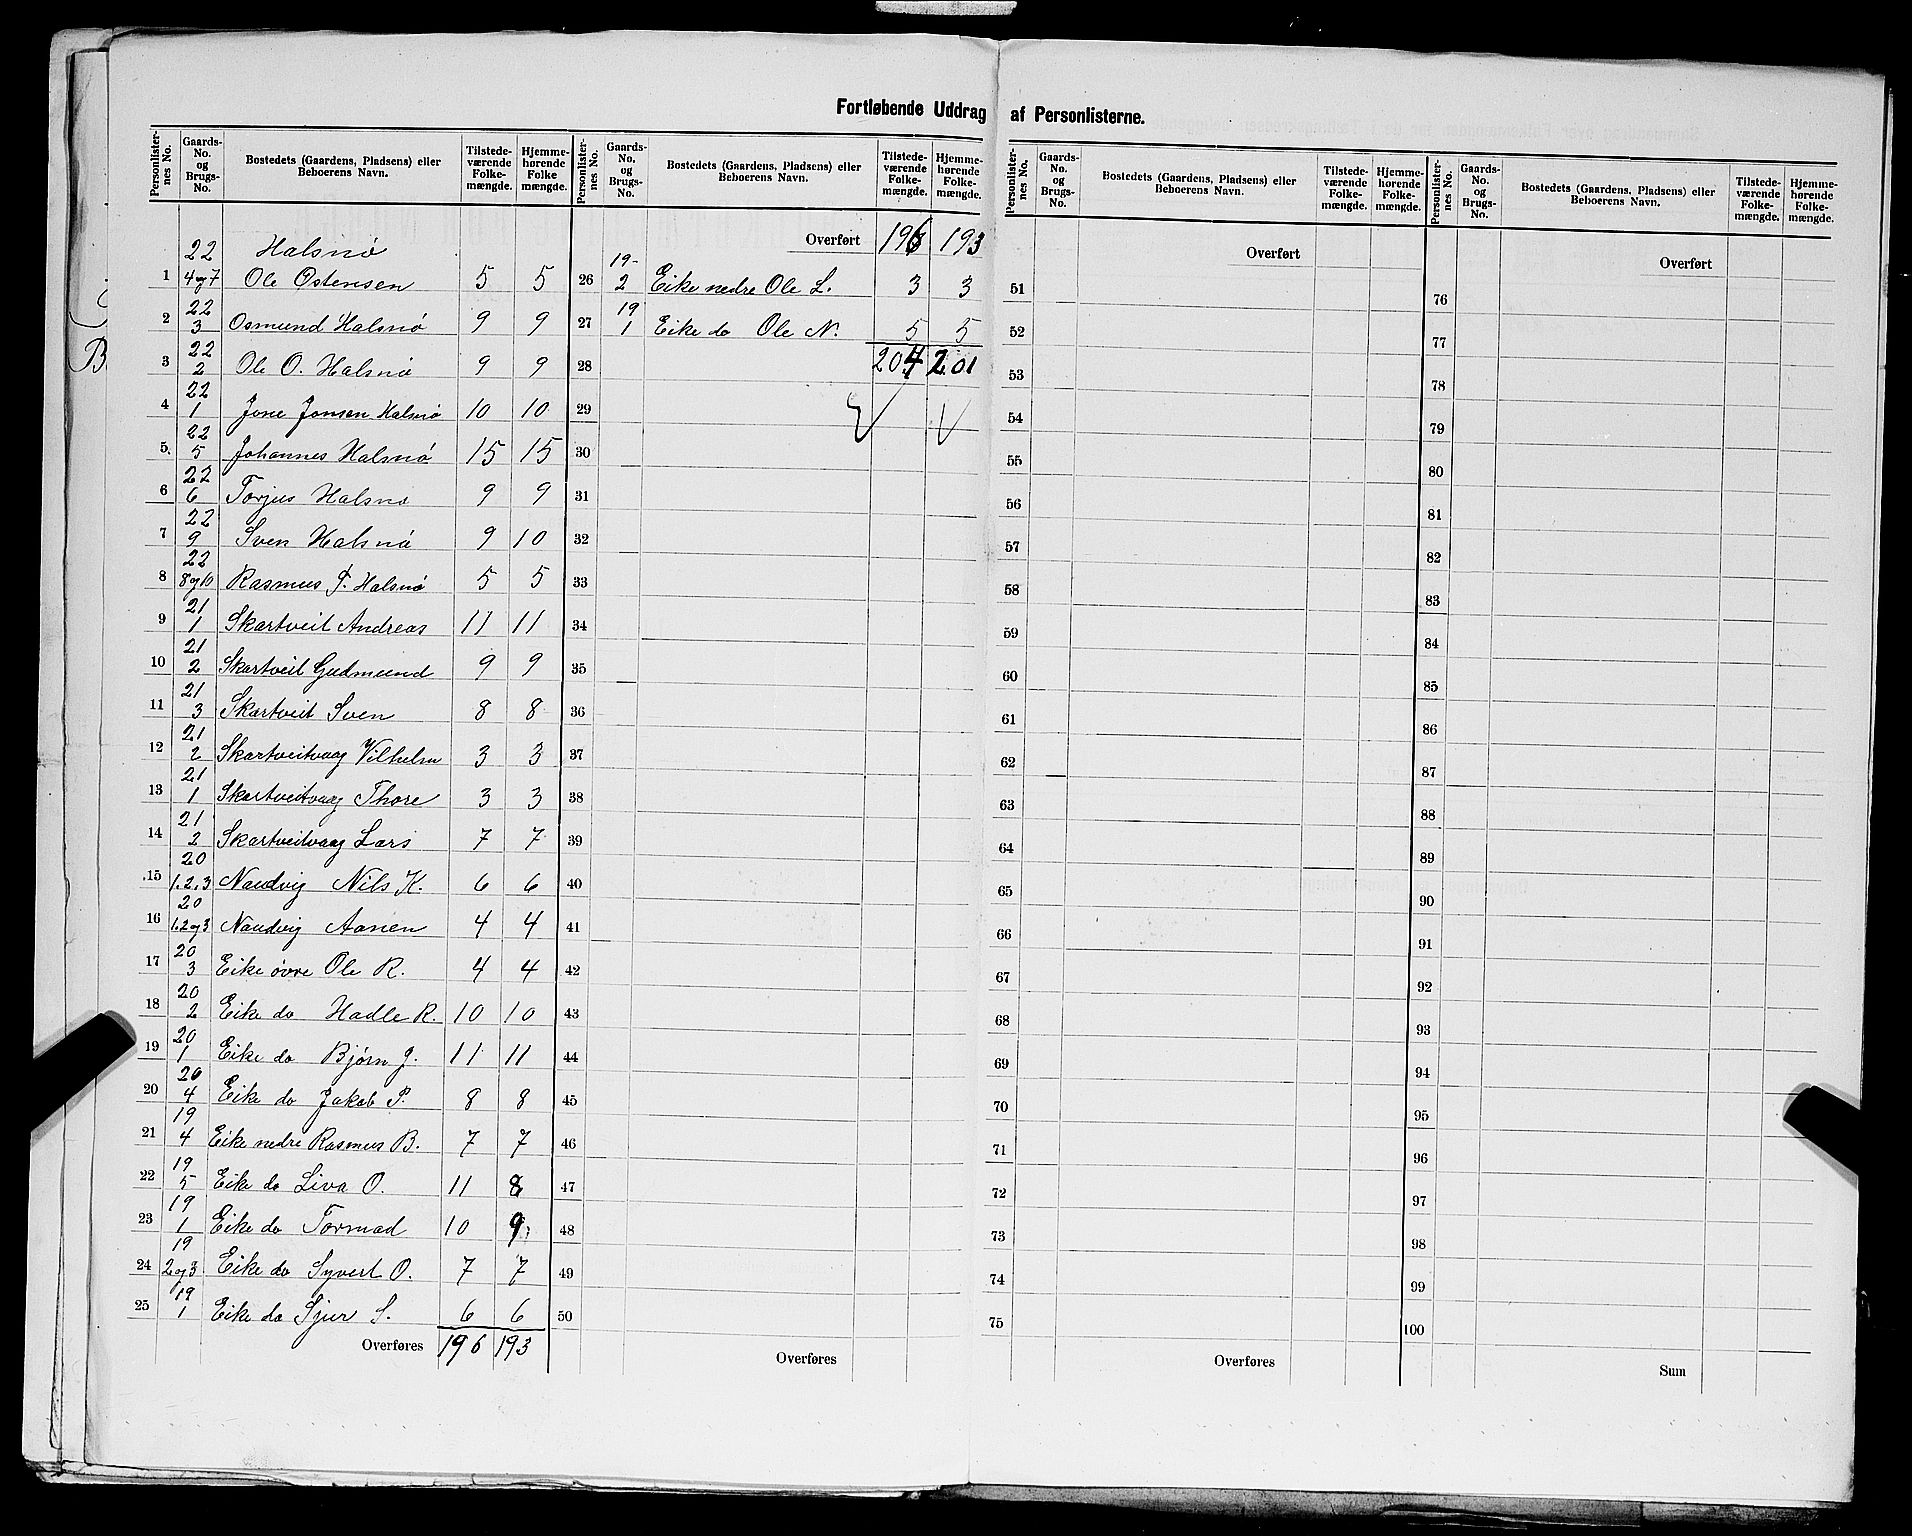 Fortløbende Uddrag af Personlisterne.
Personlister-nes No. | Gaards-No. og Brugs-No. | Bostedets (Gaardens, Pladsens) eller Beboerens Navn. | Tilstede-værende Folke-mængde. | Hjemme-hørende Folke mængde.
1 | 22 4 og 7 | Halsnø Ole Ostensen | 5 | 5
2 | 22 3 | Osmund Halsnø | 9 | 9
3 | 22 2 | Ole O. Halsnø | 9 | 9
4 | 22 1 | Jone Jonsen Halsnø | 10 | 10
5. | 22 5 | Johannes Halsnø | 15 | 15
6 | 22 6 | Torjus Halsnø | 9 | 9
7 | 22 9 | Sven Halsnø | 9 | 10
8 | 22 8 og 10 | Rasmus P. Halsnø | 5 | 5
9 | 21 1 | Skartveit Andreas | 11 | 11
10 | 21 2 | Skartveit Gudmund | 9 | 9
11 | 21 3 | Skartveit Sven | 8 | 8
12 | 21 2 | Skartveitvaag Vilhelm | 3 | 3
13 | 21 1 | Skartveitvaag Thore | 3 | 3
14 | 21 2 | Skartveitvaag Lars | 7 | 7
15 | 20 1.2.3 | Naudvig Nils K. | 6 | 6
16 | 20 1.2 og 3 | Naudvig Aanen | 4 | 4
17 | 20 3 | Eike øvre Ole R. | 4 | 4
18 | 20 2 | Eike do Hadle R. | 10 | 10
19 | 20 1 | Eike do Bjørn J. | 11 | 11
20 | 20 4 | Eike do Jakob P. | 8 | 8
21 | 19 4 | Eike nedre Rasmus B. | 7 | 7
22 | 19 5 | Eike do Liva O. | 11 | 8
23 | 19 1 | Eike do Tormod | 10 | 9
24 | 19 2 og 3 | Eike do Syvert O. | 7 | 7
25 | 19 1 | Eike do Sjur S. | 6 | 6
Overføres | 196 | 193
Personlister-nes No. | Gaards-No. og Brugs-No. | Bostedets (Gaardens, Pladsens) eller Beboerens Navn. | Tilstede-værende Folke-mængde. | Hjemme-hørende Folke-mængde.
Overført | 196 | 193
26 | 19 2 | Eike nedre Ole L. | 3 | 3
27 | 19 1 | Eike do Ole N. | 5 | 5
28 | 204 | 201
29
30
31
32
33
34
35
36
37
38
39
40
41
42
43
44
45
46
47
48
49
50
Overføres
Personlister-nes No. | Gaards-No. og Brugs-No. | Bostedets (Gaardens, Pladsens) eller Beboerens Navn. | Tilstede-værende Folke-mængde. | Hjemme-hørende Folke-mængde.
Overført
51
52
53
54
55
56
57
58
59
60
61
62
63
64
65
66
67
68
69
70
71
72
73
74
75
Overføres
Personlister-nes No. | Gaards-No. og Brugs-No. | Bostedets (Gaardens, Pladsens) eller Beboerens Navn. | Tilstede-værende Folke-mængde. | Hjemme-hørende Folke-mængde.
Overført
76
77
78
79
80
81
82
83
84
85
86
87
88
89
90
91
92
93
94
95
96
97
98
99
100
Sum